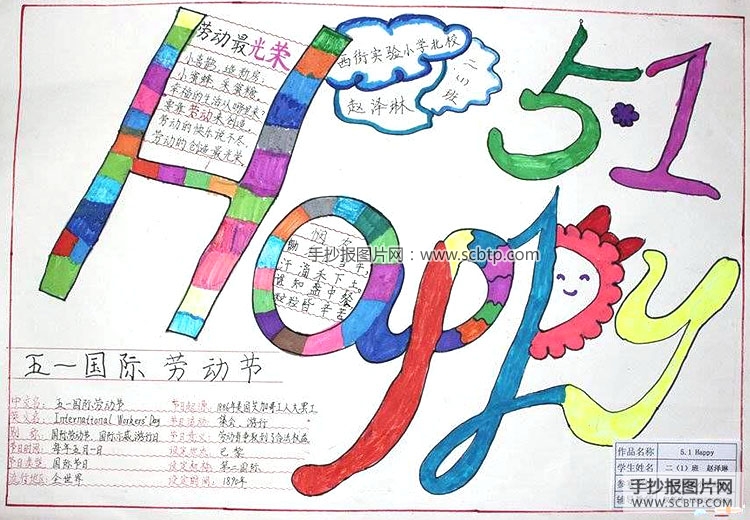 劳动最光荣
小喜鹊,造新房,
小蜜蜂,采蜜糖,
幸福的生活从哪里来?
要靠劳动来创造。
劳动的快乐说不尽,
劳动的创造最光荣。
西街实验小学北校
二(1)班
赵泽琳
5.1
Happy
手抄报图片网:www.scbtp.com
汗滴禾下土。
谁知盘中餐
粒粒皆辛苦
五一国际劳动节
中文名: 五一国际劳动节 节日起源: 1886年美国芝加哥工人大罢工
英文名: International Workers' Day 节日活动: 集会、游行
别称: 国际劳动节、国际示威游行日 节日意义: 劳动者争取到了合法权益
节日时间: 每年五月一日 设定地点: 巴黎
节日类型: 国际节日 设定组织: 第二国际
流行地区: 全世界 设定时间: 1890年
作品名称 5.1 Happy
学生姓名 二(1)班 赵泽琳
手抄报图片网
WWW.SCBTP.COM